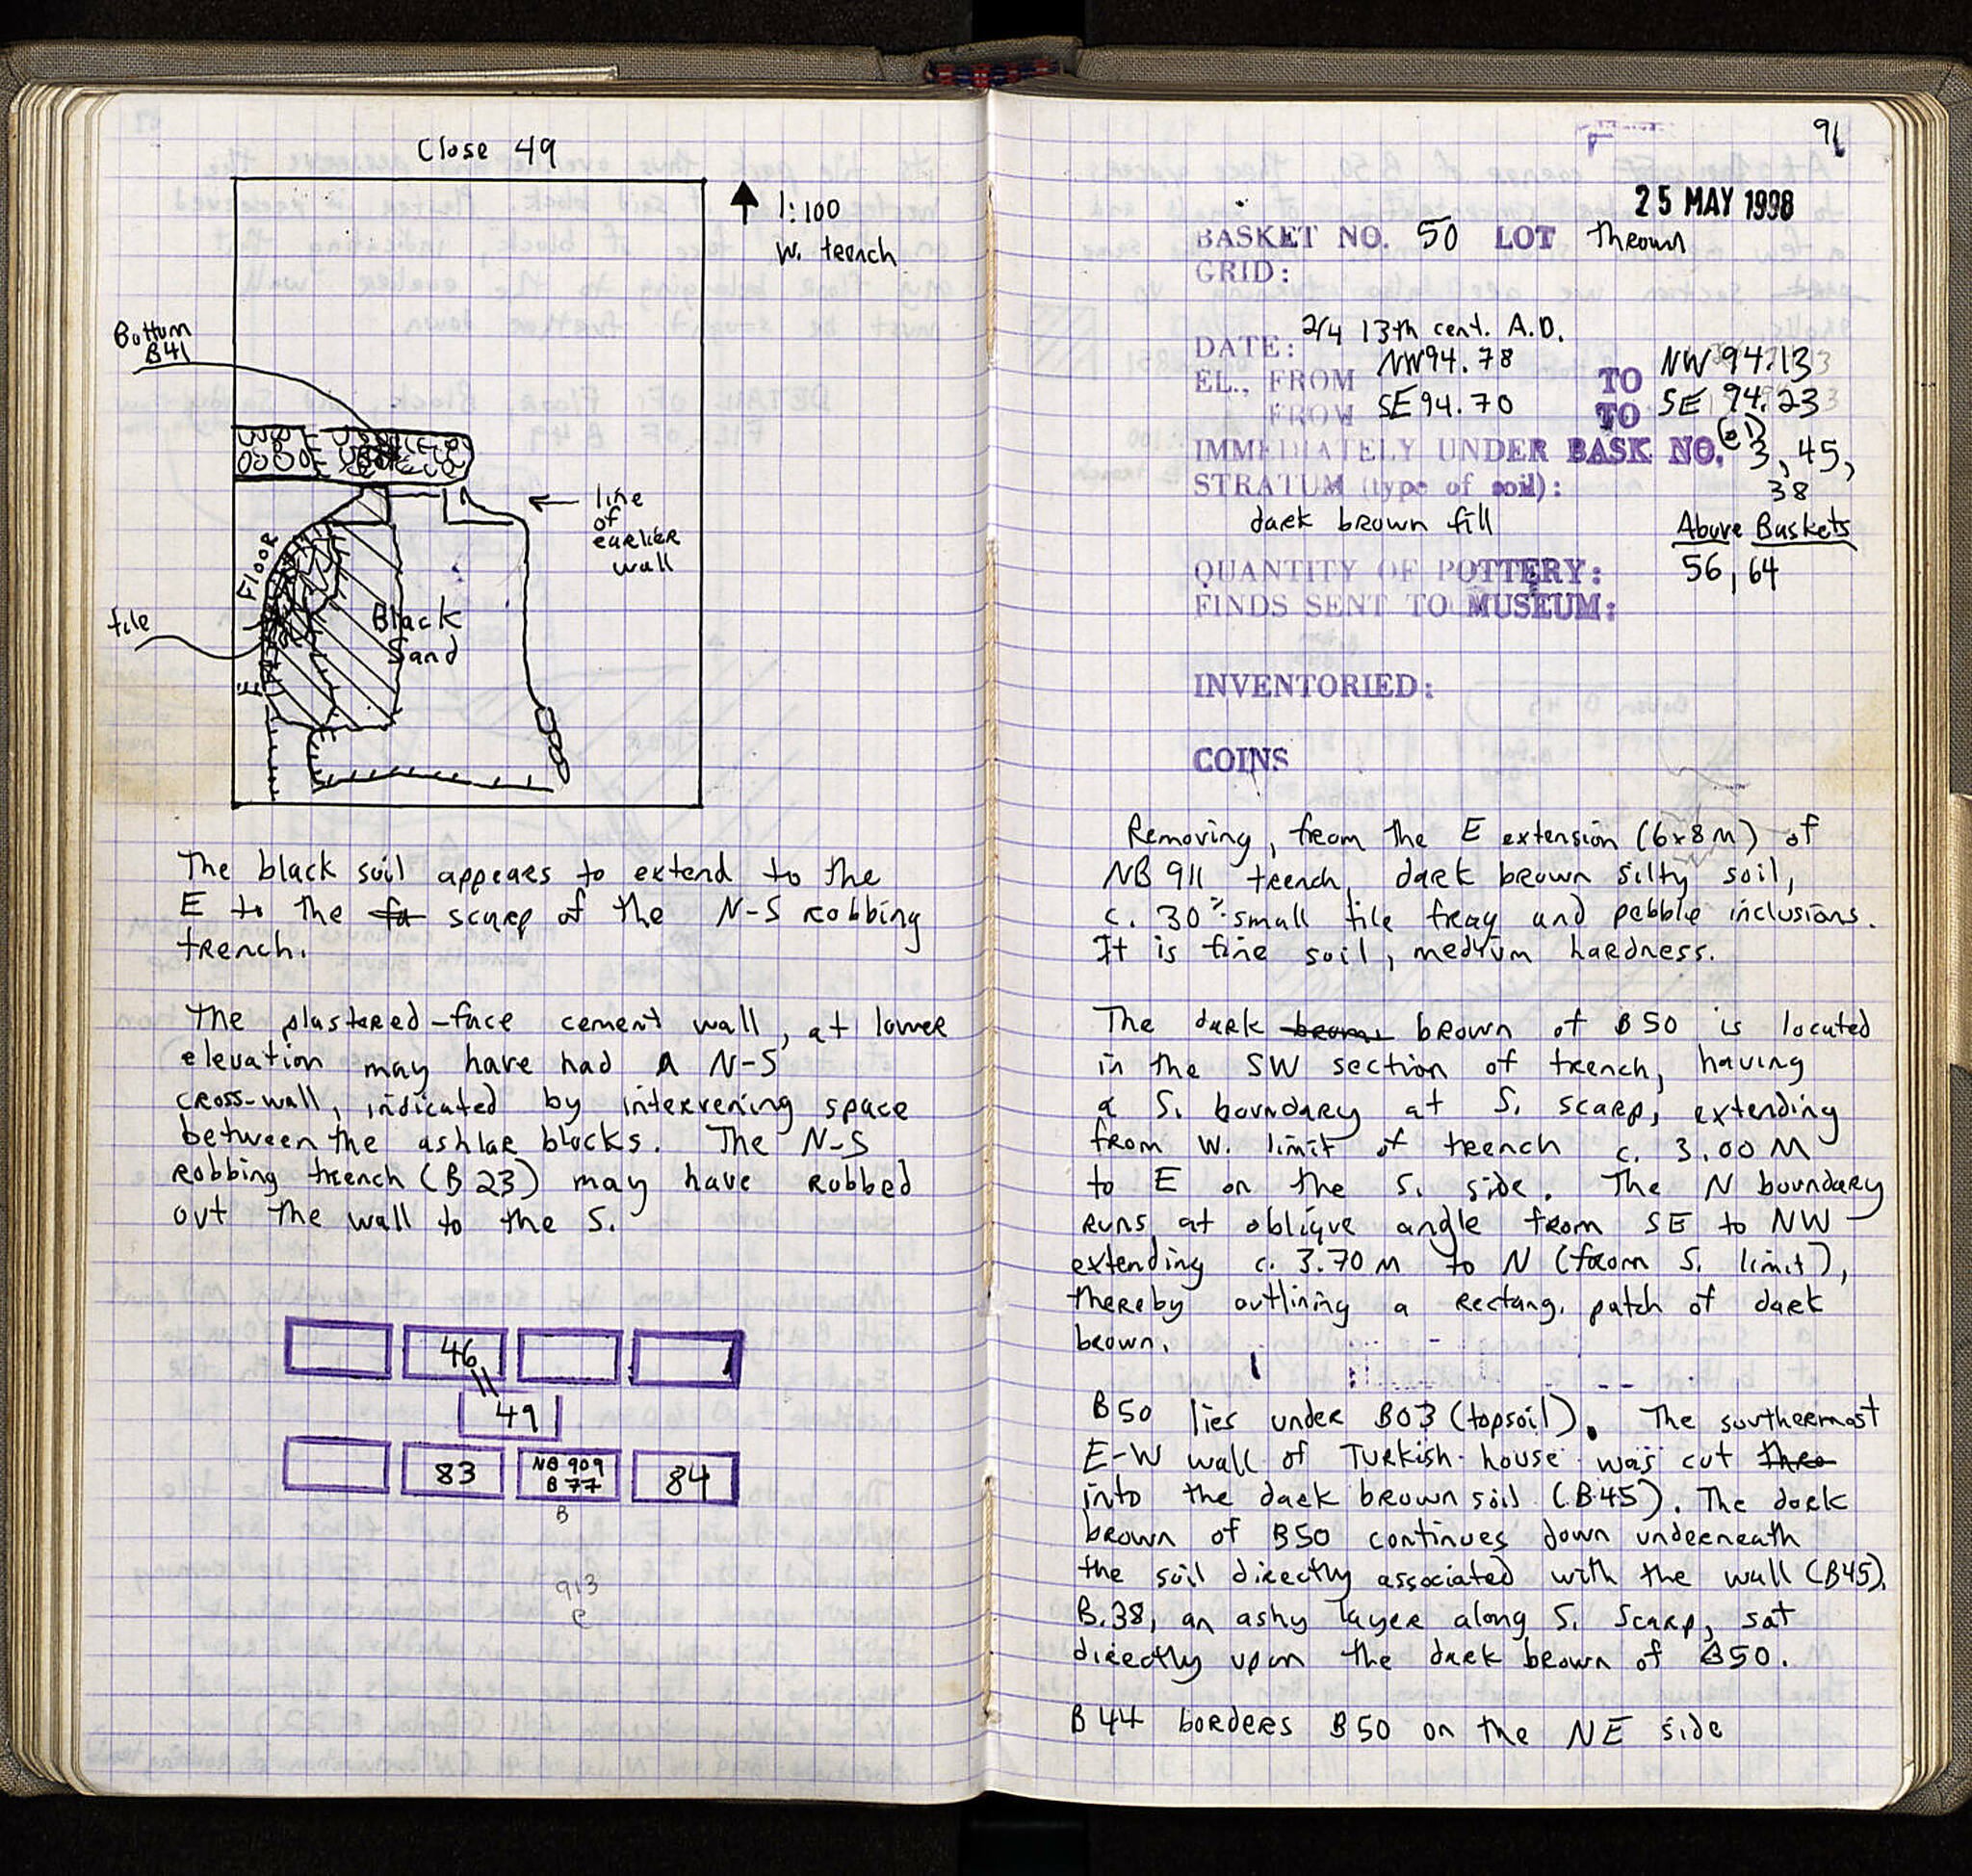 Close 49
1:100
W. trench
Bottom
B41
line
of
earlier
wall
Floor
tile
Black
Sand
The black soil appears to extend to the
E to the scarp of the N-S robbing
trench.
The plastered-face cement wall, at lower
elevation may have had a N-S
cross-wall, indicated by intervening space
between the ashlar blocks. The N-S
Robbing trench (B 23) may have robbed
out the wall to the S.
46
49
83
NB 909
B 77
84
B
913
C
91
25 MAY 1998
BASKET NO. 50 LOT thrown
GRID:
DATE: 2/4 13th cent. A.D.
EL., FROM NW94.78 TO NW 94.13
FROM SE94.70 TO SE 94.23
IMMEDIATELY UNDER BASK NO. 3, 45,
38
STRATUM (type of soil):
dark brown fill
Above Baskets
56, 64
QUANTITY OF POTTERY:
FINDS SENT TO MUSEUM:
INVENTORIED:
COINS
Removing, from the E extension (6x8M) of
NB 911 trench, dark brown silty soil,
c. 30% small tile frag and pebble inclusions.
It is fine soil, medium hardness.
The dark brown of B50 is located
in the SW section of trench, having
a S. boundary at S. scarp, extending
from W. limit of trench c. 3.00 M
to E on the S. side. The N boundary
runs at oblique angle from SE to NW
extending c. 3.70 M to N (from S. limit),
thereby outlining a rectang. patch of dark
brown.
B50 lies under B03 (topsoil). The southermost
E-W wall of Turkish house was cut
into the dark brown soil (B45). The dark
brown of B50 continues down underneath
the soil directly associated with the wall (B45).
B.38, an ashy layer along S. Scarp, sat
directly upon the dark brown of B50.
B44 borders B50 on the NE side